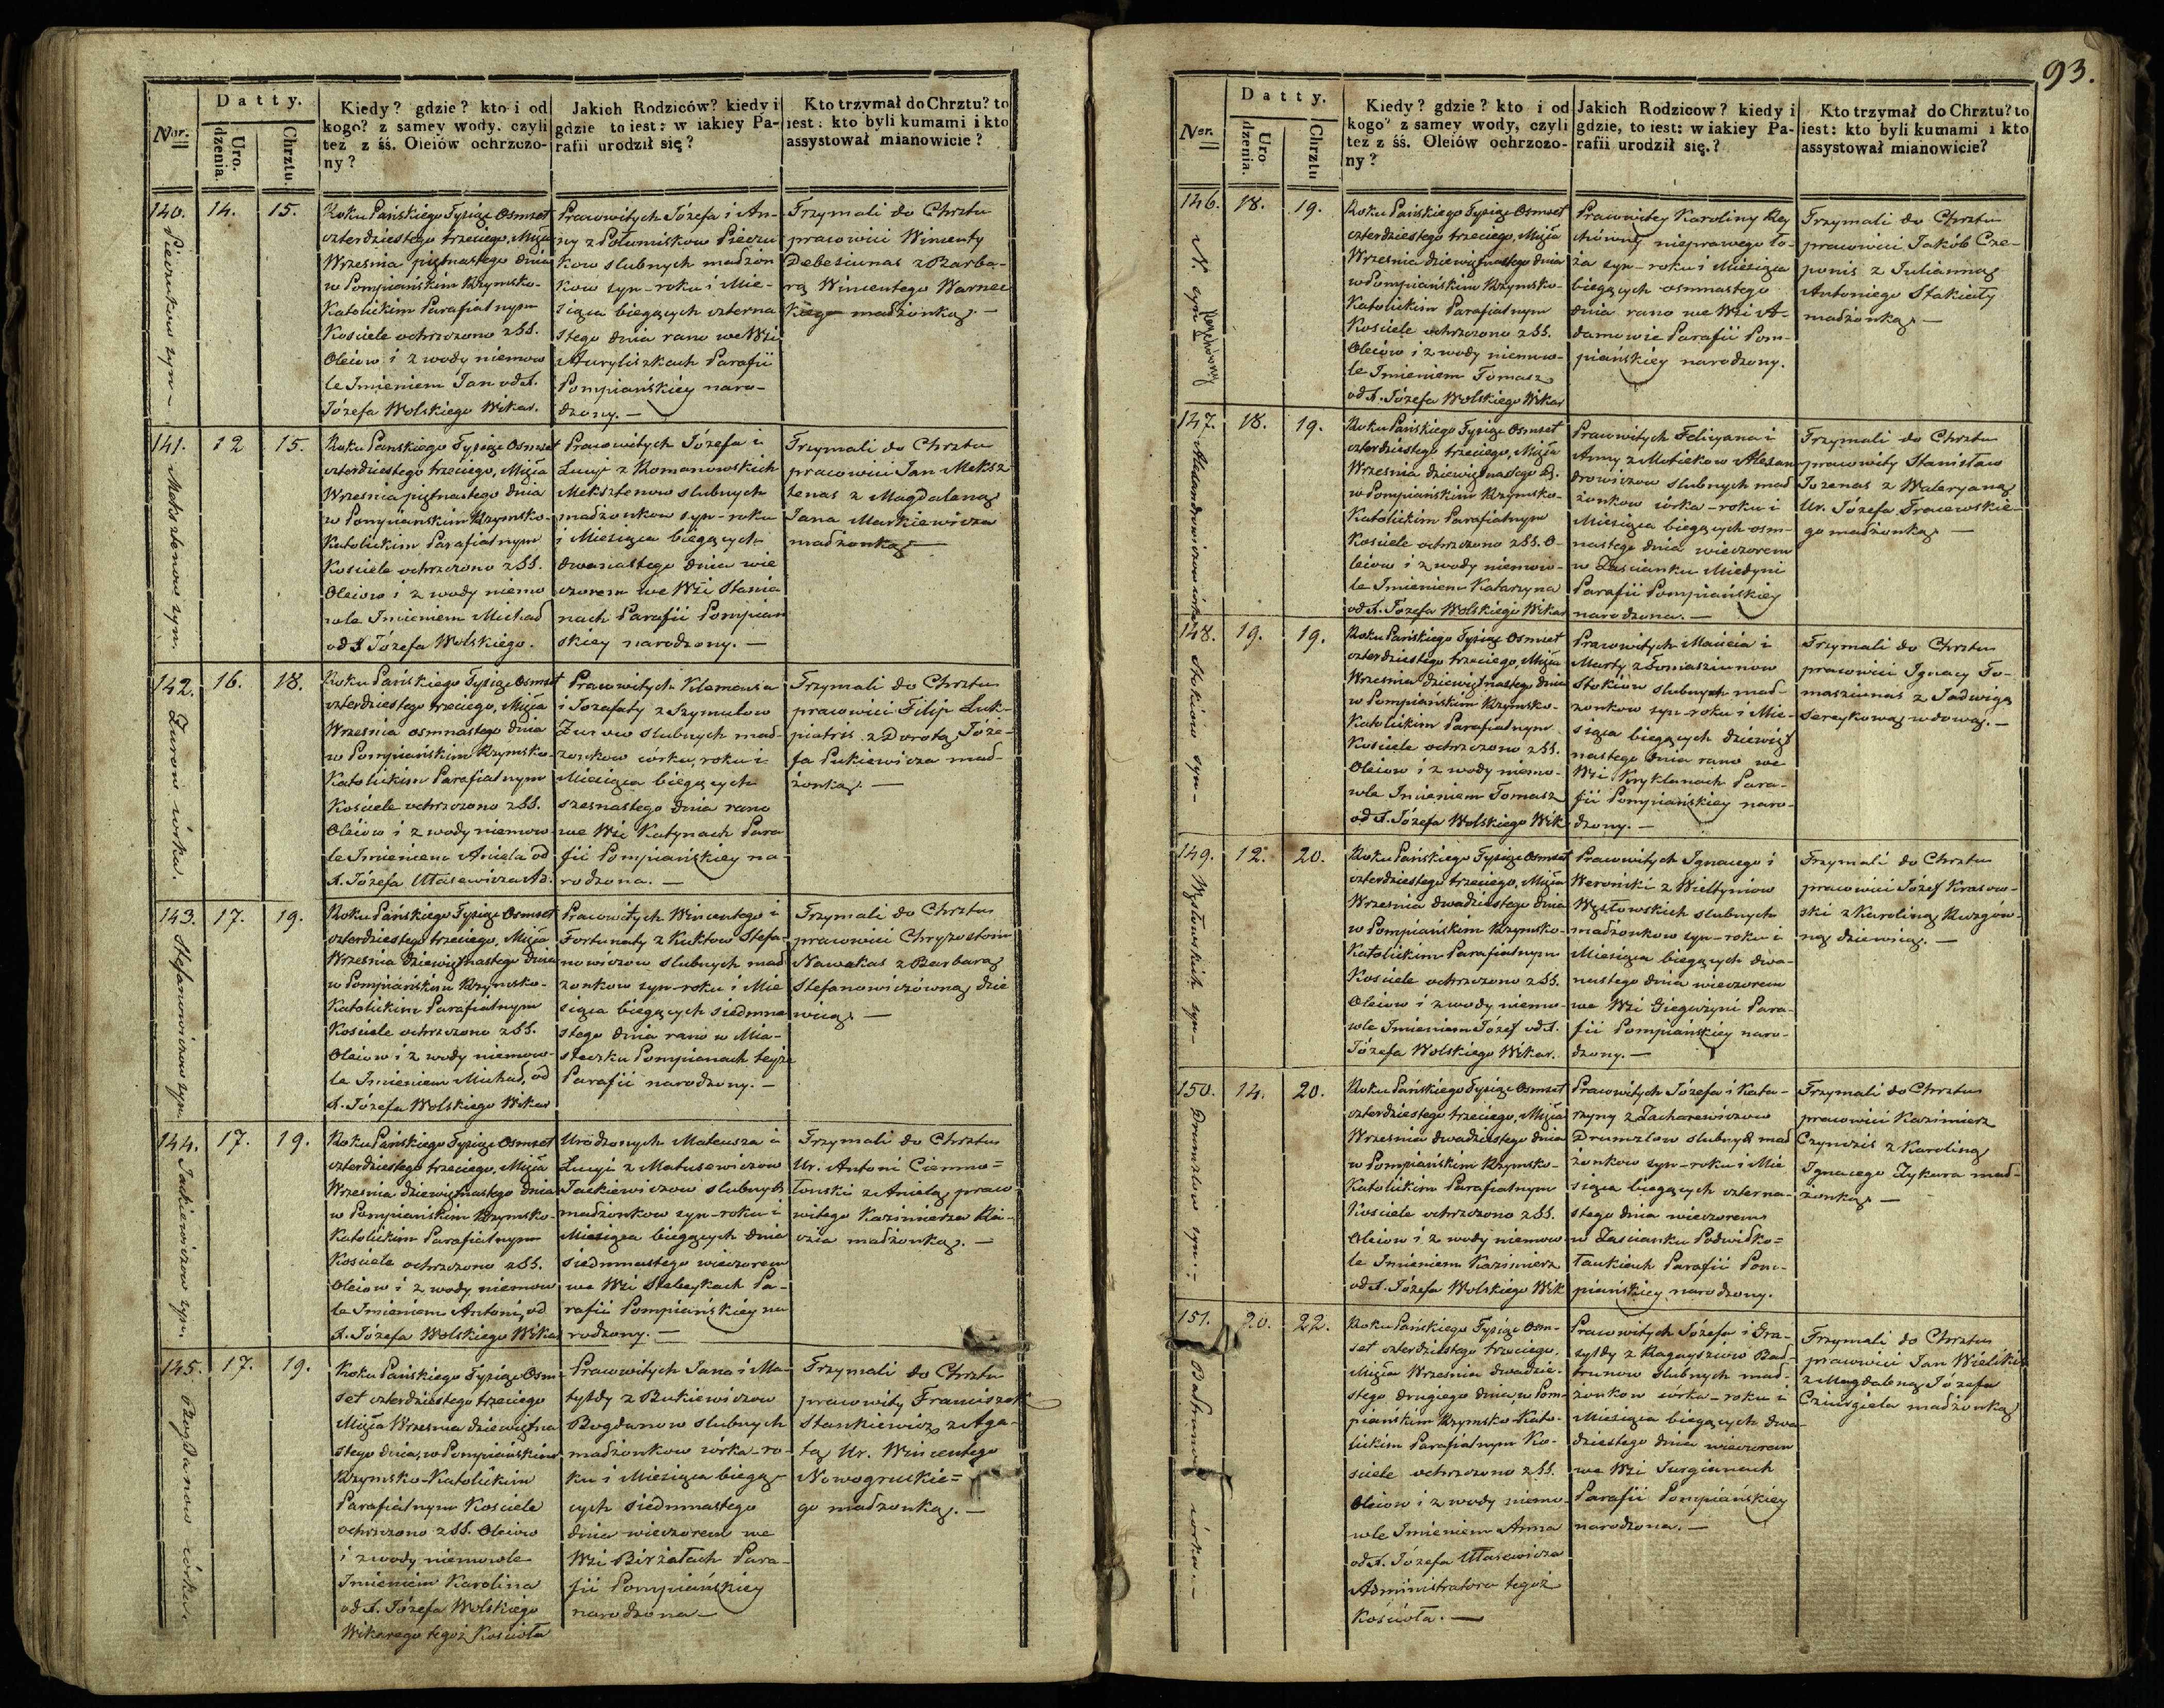 93.
Nor.
Datty.
Uro.
dzenia.
Chrztu.
Kiedy? gdzie? kto i od
kogo? z samey wody, czyli
tez z śś. Oleiów ochrzczo-
ny?
Jakich Rodziców? kiedy i
gdzie to iest: w iakiey Pa-
rafii urodził się?
Kto trzymał do Chrztu? to
iest: kto byli kumami i kto
assystował mianowicie?
140. 14. 15.
syn
Roku Pańskiego Tysiąc Osmset
czterdziestego trzeciego, Miąsa
Wrzesnia piętnastego dnia
w Pompiańskim Rzymsko-
Katolickim Parafialnym
Kosciele ochrzczono z SS.
Oleiow i z wody niemow
le Imieniem Jan od X.
Józefa Wolskiego Wikar.
Pracowitych Józefa i An-
ny z Pieczu
kow slubnych madżon
kow syn - roku i Mie-
siąca biegących czterna
stego dnia rano we Wsi
Auryliszkach Parafii
Pompiańskiey naro-
dzony. —
Trzymali do Chrztu
pracowici Wincenty
Debesiunas z Barba-
rą Wincentego Warnec
kiego madżonką. —
141. 12 15.
Meksztenow syn
Roku Pańskiego Tysiąc Osmset
czterdziestego trzeciego, Miąsa
Wrzesnia piętnastego dnia
w Pompiańskim Rzymsko-
Katolickim Parafialnym
Kosciele ochrzczono z SS.
Oleiow i z wody niemo
wle Imieniem Michał
od X Józefa Wolskiego.
Pracowitych Józefa i
Łucyi z Romanowskich
Meksztenow slubnych
madżonkow syn - roku
i Miesiąca biegących
dwunastego dnia wie
czorem we Wsi Stania
nach Parafii Pompian
skiey narodzony. —
Trzymali do Chrztu
pracowici Jan Meksz
tenas z Magdaleną
Jana Markiewicza
madżonką —
142. 16. 18.
Żurow córka.
Roku Pańskiego Tysiąc Osmset
czterdziestego trzeciego, Miąsa
Wrzesnia osmnastego dnia
w Pompiańskim Rzymsko-
Katolickim Parafialnym
Kosciele ochrzczono z SS.
Oleiow i z wody niemow
le Imieniem Aniela od
X. Józefa Utasewicza Ad.
Pracowitych Klemensa
i Jozafaty z Szymulow
Żurow slubnych mad-
żonkow córka, roku i
Miesiąca biegących
szesnastego dnia rano
we Wsi Katynach Para
fii Pompiańskiey na-
rodzona. —
Trzymali do Chrztu
pracowici Filip Łuk-
piatris z Dorotą Józe-
fa Pukiewicza mad-
żonką. —
143. 17. 19.
Stefanowiczow syn
Roku Pańskiego Tysiąc Osmset
czterdziestego trzeciego, Miąsa
Wrzesnia dziewiętnastego dnia
w Pompiańskim Rzymsko-
Katolickim Parafialnym
Kosciele ochrzczono z SS.
Oleiow i z wody niemow-
le Imieniem Michał, od
X. Józefa Wolskiego Wikar
Pracowitych Wincentego i
Fortunaty z Kuktow Stefa-
nowiczow slubnych mad
żonkow syn - roku i Mie
siąca biegących siedmna
stego dnia rano w Mia-
steczku Pompianach teyże
Parafii narodzony. —
Trzymali do Chrztu
pracowici Chryzostom
Nawakas z Barbarą
Stefanowiczówną dzie
wicą. —
144. 17. 19.
Jackiewiczow syn.
Roku Pańskiego Tysiąc Osmset
czterdziestego trzeciego, Miąsa
Wrzesnia dziewiętnastego dnia
w Pompiańskim Rzymsko-
Katolickim Parafialnym
Kosciele ochrzczono z SS.
Oleiow i z wody niemow
le Imieniem Antoni, od
X. Józefa Wolskiego Wikar
Urodzonych Mateusza i
Łucyi z Matusewiczow
Jackiewiczow slubnych
madżonkow syn - roku i
Miesiąca biegących dnia
siedmnastego wieczorem
we Wsi Słabeykach Pa-
rafii Pompiańskiey na
rodzony. —
Trzymali do Chrztu
Ur. Antoni Ciemno=
łonski z Anielą praco
witego Kazimierza
madżonką. —
145. 17. 19.
Bogdanow córka.
Roku Pańskiego Tysiąc Osm
set czterdziestego trzeciego
Miąsa Wrzesnia dziewiętna
stego dnia, w Pompiańskim
Rzymsko-Katolickim
Parafialnym Kosciele
ochrzczono z SS. Oleiow
i z wody niemowle
Imieniem Karolina
od X. Józefa Wolskiego
Wikarego tegoż Kosciola
Pracowitych Jana i Ma-
tyldy z Bukiewiczow
Bogdanow slubnych
madżonkow córka - ro-
ku i Miesiąca biegą-
cych siedmnastego
dnia wieczorem we
Wsi Birżałach Para-
fii Pompiańskiey
narodzona —
Trzymali do Chrztu
pracowity Franciszek
Stankiewicz z Aga-
tą Ur. Wincentego
Nowogruckie=
go madżonką. —
Nor.
Datty.
Uro-
dzenia.
Chrztu
Kiedy? gdzie? kto i od
kogo? z samey wody, czyli
tez z śś. Oleiów ochrzczo-
ny?
Jakich Rodzicow? kiedy i
gdzie, to iest: w iakiey Pa-
rafii urodził się.?
Kto trzymał do Chrztu? to
iest: kto byli kumami i kto
assystował mianowicie?
146. 18. 19.
N. syn
Roku Pańskiego Tysiąc Osmset
czterdziestego trzeciego, Miąsa
Wrzesnia dziewiętnastego dnia
w Pompiańskim Rzymsko-
Katolickim Parafialnym
Kosciele ochrzczono z SS.
Oleiow i z wody niemow-
le Imieniem Tomasz
od X. Józefa Wolskiego Wikar
Pracowitey Karoliny
nieprawego ło-
ża syn - roku i Miesiąca
biegących osmnastego
dnia rano we Wsi A-
damowie Parafii Pom-
piańskiey narodzony.
Trzymali do Chrztu
pracowici Jakób Cze-
ponis z Julianną
Antoniego Stakiety
madżonką. —
147. 18. 19.
Alexandrowiczow córka
Roku Pańskiego Tysiąc Osmset
czterdziestego trzeciego, Miąsa
Wrzesnia dziewiętnastego d.
w Pompiańskim Rzymsko-
Katolickim Parafialnym
Kosciele ochrzczono z SS. O-
leiow i z wody niemow-
le Imieniem Katarzyna
od X. Józefa Wolskiego Wikar
Pracowitych Felicyana i
Anny z Motiekow Alexan
drowiczow slubnych mad
żonkow córka - roku i
Miesiąca biegących osm-
nastego dnia wieczorem
w Zascianku Miedyni
Parafii Pompiańskiey
narodzona. —
Trzymali do Chrztu
pracowity Stanisław
Jozenas z Waleryaną
Ur. Józefa Dracewskie-
go madżonką. —
148. 19. 19.
Stokiow syn -
Roku Pańskiego Tysiąc Osmset
czterdziestego trzeciego, Miąsa
Wrzesnia dziewiętnastego dnia
w Pompiańskim Rzymsko-
Katolickim Parafialnym
Kosciele ochrzczono z SS.
Oleiow i z wody niemo-
wle Imieniem Tomasz
od X. Józefa Wolskiego Wik
Pracowitych Macieia i
Marty z Tomasziunow
Stokiow slubnych mad-
żonkow syn - roku i Mie-
siąca biegących dziewięt
nastego dnia rano we
Wsi Kryklanach Para-
fii Pompiańskiey naro-
dzony. —
Trzymali do Chrztu
pracowici Ignacy To-
masziunas z Jadwigą
Sereykową wdową. —
149. 12. 20.
Węsłowskich syn -
Roku Pańskiego Tysiąc Osmset
czterdziestego trzeciego, Miąsa
Wrzesnia dwudziestego dnia
w Pompiańskim Rzymsko-
Katolickim Parafialnym
Kosciele ochrzczono z SS.
Oleiow i z wody niemo-
wle Imieniem Józef od X.
Józefa Wolskiego Wikar.
Pracowitych Ignacego i
Weroniki z Wieltyniow
Węsłowskich slubnych
madżonkow syn - roku i
Miesiąca biegących dwu-
nastego dnia wieczorem
we Wsi Giegużyni Para-
fii Pompiańskiey naro-
dzony. —
Trzymali do Chrztu
pracowici Józef Krasow-
ski z Karoliną Ruzgów-
ną dziewicą. —
150. 14. 20.
Drumzlow syn. -
Roku Pańskiego Tysiąc Osmset
czterdziestego trzeciego, Miąsa
Wrzesnia dwudziestego dnia
w Pompiańskim Rzymsko-
Katolickim Parafialnym
Kosciele ochrzczono z SS.
Oleiow i z wody niemow-
le Imieniem Kazimierz
od X. Józefa Wolskiego Wik
Pracowitych Józefa i Kata-
rzyny z Zacharewiczow
Drumzlow slubnych mad
żonkow syn - roku i Mie
siąca biegących czterna-
stego dnia wieczorem
w Zascianku Podwiłko=
łaukiech Parafii Pom-
piańskiey narodzony.
Trzymali do Chrztu
pracowici Kazimierz
Czyndzis z Karoliną
Ignacego Zykura mad-
żonką. —
151. 20. 22.
córka. -
Roku Pańskiego Tysiąc Osm-
set czterdziestego trzeciego,
Miąsa Wrzesnia dwudzie-
stego drugiego dnia, w Pom-
piańskim Rzymsko-Kato-
lickim Parafialnym Ko-
sciele ochrzczono z SS.
Oleiow i z wody niemo-
wle Imieniem Anna
od X. Józefa Utasewicza
Administratora tegoż
Kościoła. —
Pracowitych Józefa i Gra-
syldy z Ragaysziow Bal-
trunow slubnych mad-
żonkow córka - roku i
Miesiąca biegących dwu-
dziestego dnia wieczorem
we Wsi Jurgianach
Parafii Pompiańskiey
narodzona. —
Trzymali do Chrztu
pracowici Jan Wielikis
z Magdaleną Józefa
Cziurgiela madżonką